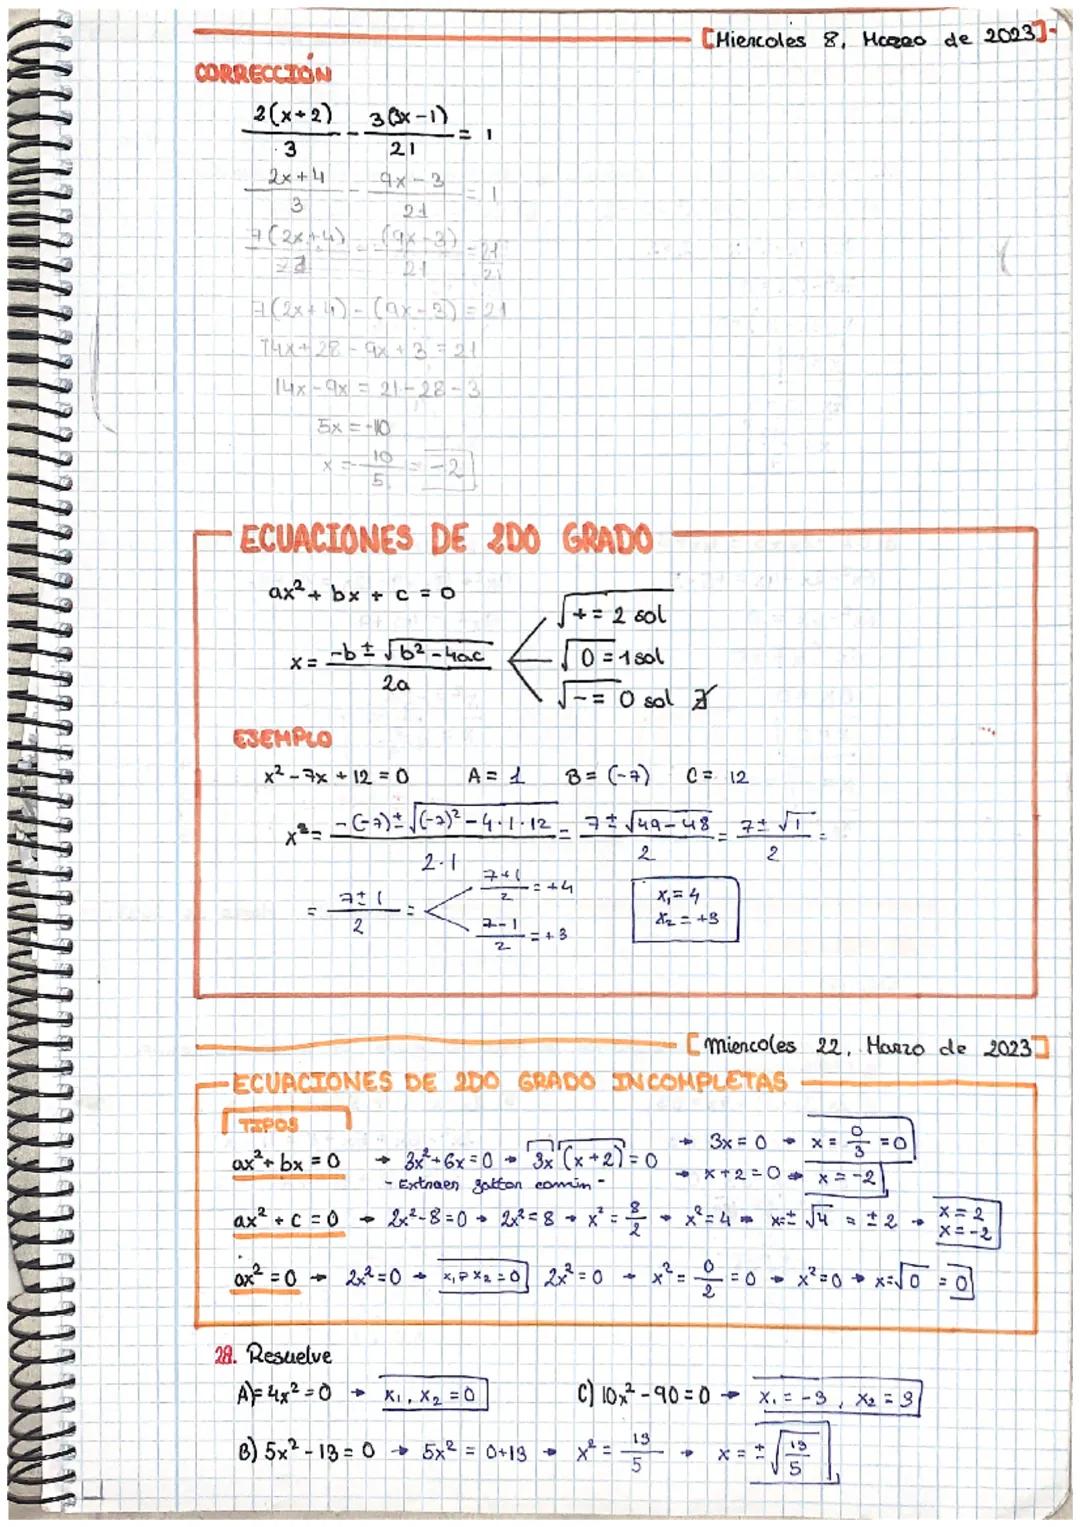 [Miercoles 8, Marzo de 2023]
CORRECCIÓN
2(x+2)/3 - 3(3x-1)/21 = 1
2x+4/3 - 9x-3/21 = 1
7(2x+4)/21 - (9x-3)/21 = 21/21
7(2x+4)-(9x-3)=21
14x+28-9x+3=21
14x-9x = 21-28-3
5x=-10
x=-10/5 = -2
ECUACIONES DE 2DO GRADO
ax²+ bx + c = 0
x = -b ± √b²-4ac / 2a
√+ = 2 sol
√0 = 1 sol
√- = 0 sol ∄
EJEMPLO
x²-7x+12=0 A= 1 B= (-7) C= 12
x²= -(-7)±√(-7)²-4·1·12 / 2·1 = 7±√49-48 / 2 = 7±√1 / 2 =
= 7±1 / 2 = 7+1/2 = +4
7-1/2 = +3
x₁=4
x₂ = +3
[Miercoles 22, Marzo de 2023]
ECUACIONES DE 2DO GRADO INCOMPLETAS
TIPOS
ax²+ bx = 0 → 3x²+6x=0 → 3x(x+2)=0 → 3x=0 → x= 0/3 =0
→ x+2=0 → x=-2
- Extraer factor común -
ax² + c = 0 → 2x²-8=0 → 2x²=8 → x²= 8/2 → x²=4 → x=± √4 = ±2 → x=2
x=-2
ax² = 0 → 2x²=0 → x₁ y x₂=0 2x²=0 → x²= 0/2 =0 → x²=0 → x=√0 = 0
28. Resuelve
A)= 4x²=0 → x₁, x₂ = 0
C) 10x²-90=0 → x₁ = -3, x₂ = 3
B) 5x²-13=0 → 5x² = 0+13 → x² = 13/5 → x = ± √13/5